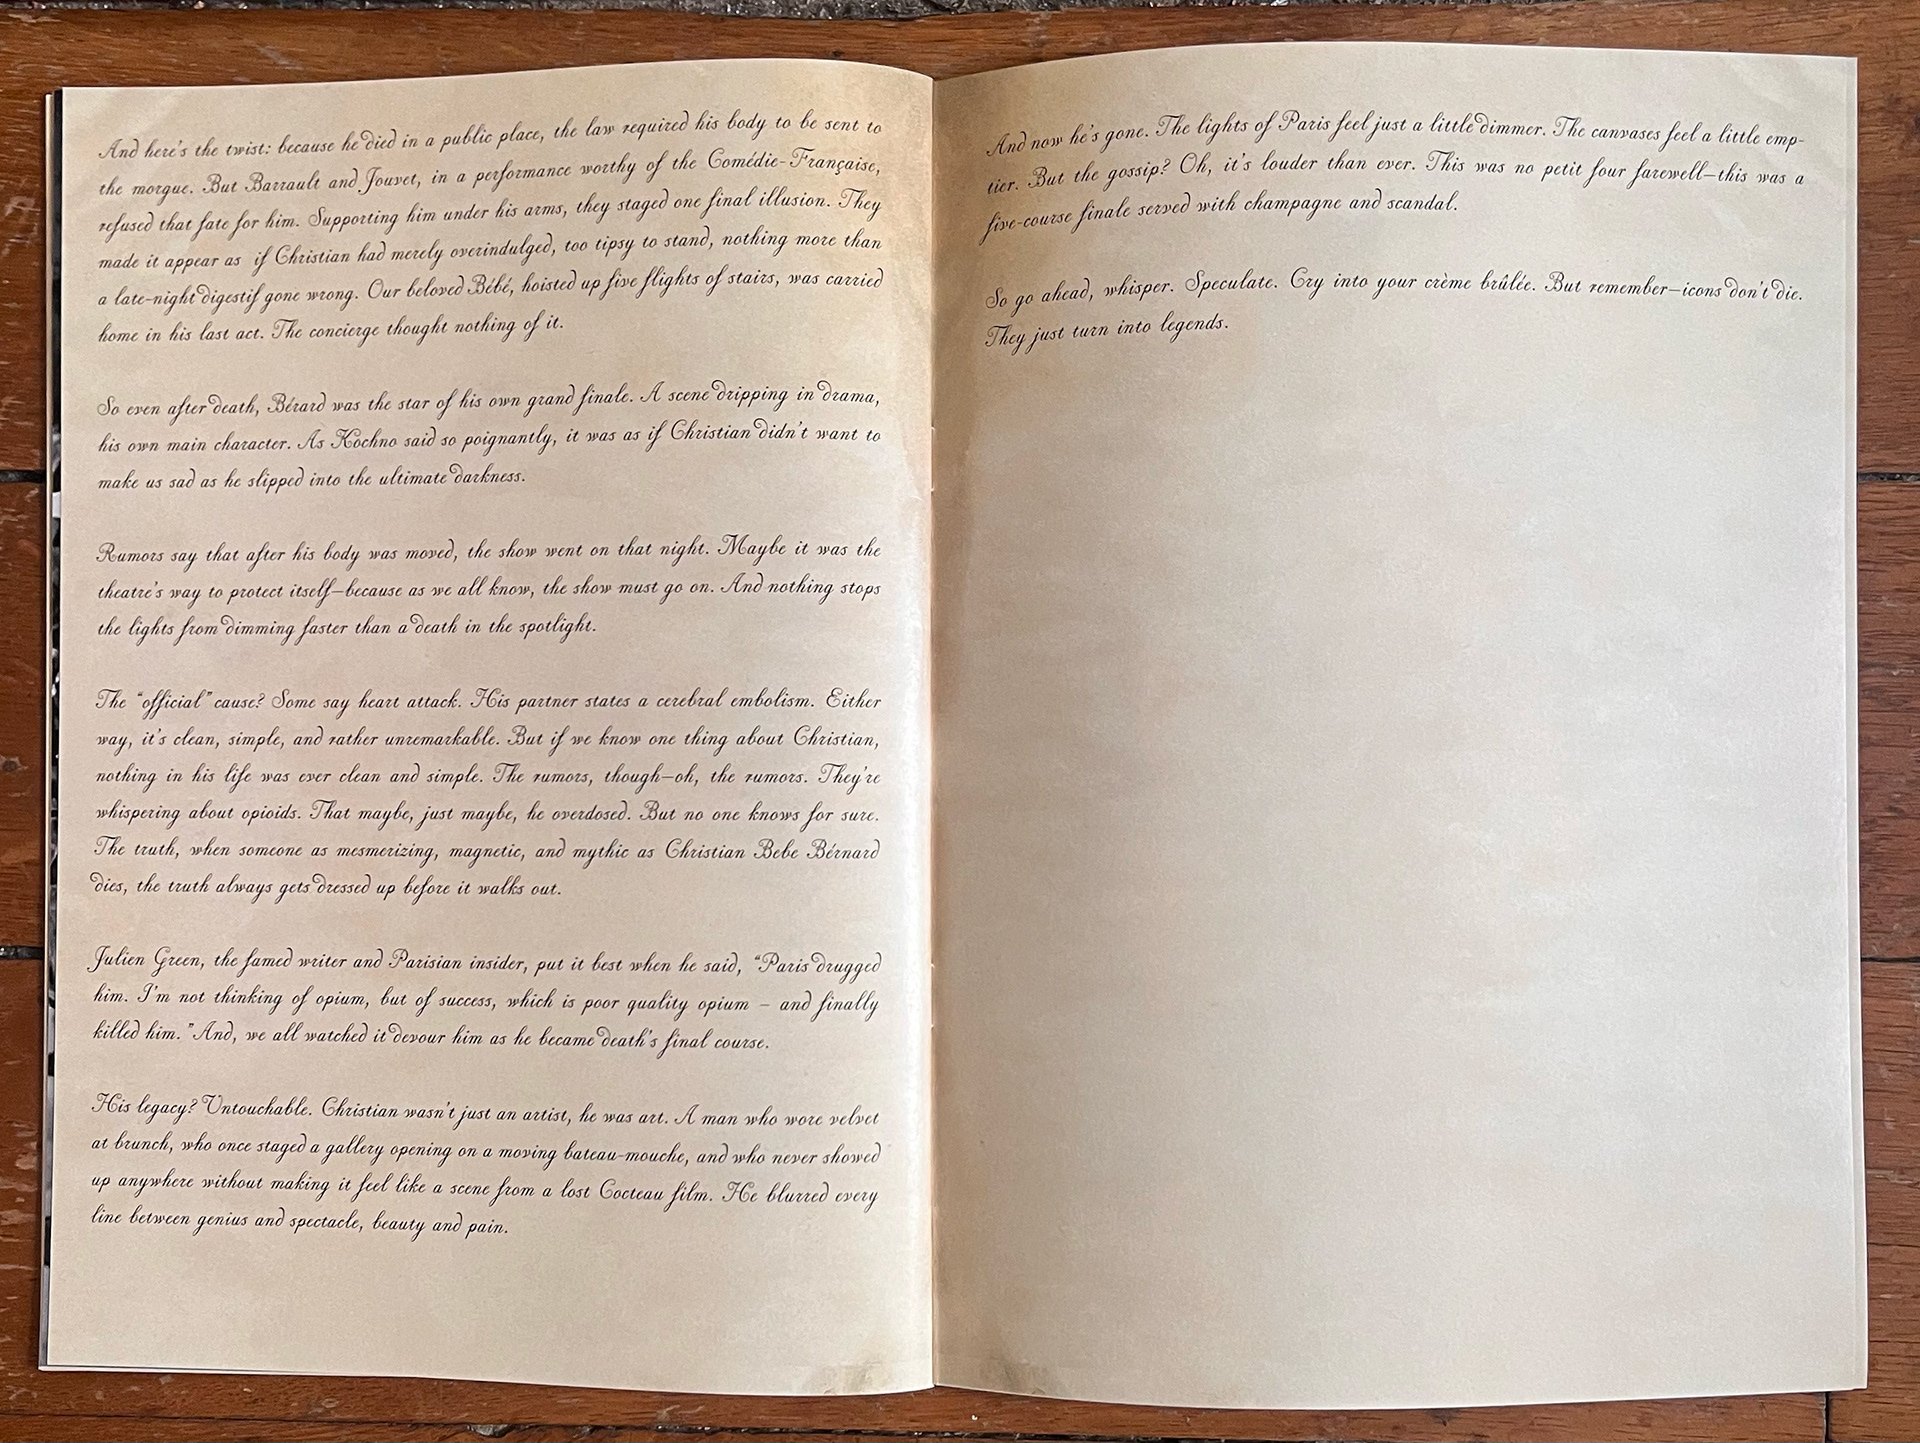 And here's the twist: because he died in a public place, the law required his body to be sent to
the morgue. But Barrault and Jouvet, in a performance worthy of the Comédie-Française,
refused that fate for him. Supporting him under his arms, they staged one final illusion. They
made it appear as if Christian had merely overindulged, too tipsy to stand, nothing more than
a late-night digestif gone wrong. Our beloved Bébé, hoisted up five flights of stairs, was carried
home in his last act. The concierge thought nothing of it.
So even after death, Bérard was the star of his own grand finale. A scene dripping in drama,
his own main character. As Kochno said so poignantly, it was as if Christian didn't want to
make us sad as he slipped into the ultimate darkness.
Rumors say that after his body was moved, the show went on that night. Maybe it was the
theatre's way to protect itself—because as we all know, the show must go on. And nothing stops
the lights from dimming faster than a death in the spotlight.
The "official" cause? Some say heart attack. His partner states a cerebral embolism. Either
way, it's clean, simple, and rather unremarkable. But if we know one thing about Christian,
nothing in his life was ever clean and simple. The rumors, though—oh, the rumors. They're
whispering about opioids. That maybe, just maybe, he overdosed. But no one knows for sure.
The truth, when someone as mesmerizing, magnetic, and mythic as Christian Bebe Bérnard
dies, the truth always gets dressed up before it walks out.
Julien Green, the famed writer and Parisian insider, put it best when he said, "Paris drugged
him. I'm not thinking of opium, but of success, which is poor quality opium – and finally
killed him." And, we all watched it devour him as he became death's final course.
His legacy? Untouchable. Christian wasn't just an artist, he was art. A man who wore velvet
at brunch, who once staged a gallery opening on a moving bateau-mouche, and who never showed
up anywhere without making it feel like a scene from a lost Cocteau film. He blurred every
line between genius and spectacle, beauty and pain.
And now he's gone. The lights of Paris feel just a little dimmer. The canvases feel a little emp-
tier. But the gossip? Oh, it's louder than ever. This was no petit four farewell—this was a
five-course finale served with champagne and scandal.
So go ahead, whisper. Speculate. Cry into your crème brûlée. But remember—icons don't die.
They just turn into legends.